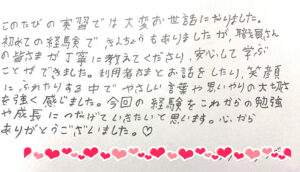 このたびの実習では大変お世話になりました。
初めての経験できんちょうもありましたが、職員さん
の皆さまが丁寧に教えてくださり、安心して学ぶ
ことができました。利用者さまとお話をしたり、笑顔
にふれたりする中でやさしい言葉や思いやりの大切さ
を強く感じました。今回の経験をこれからの勉強
や成長につなげていきたいと思います。心から
ありがとうございました。♡